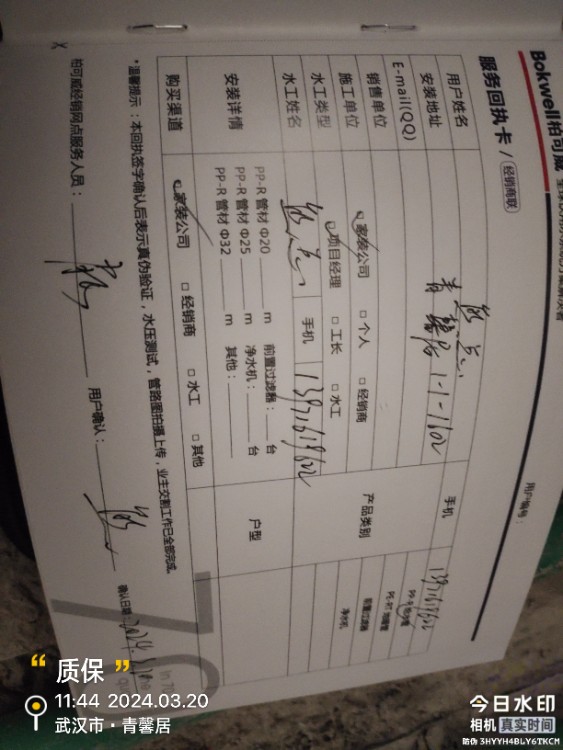 Bokwell柏可威
服务回执卡 / 经销商联
用户编号：
用户姓名
手机
安装地址 青馨居1-1-1602
E-mail(QQ)
产品类别
PP-R 地暖管
前置过滤器
净水机
销售单位 家装公司 □ 个人 □ 经销商
施工单位
水工类型 项目经理 □ 工长 □ 水工
水工姓名 手机
安装详情
PP-R 管材 Φ20 m 前置过滤器： 台
PP-R 管材 Φ25 m 净水机： 台
PP-R 管材 Φ32 m 其他：
户型
购买渠道 家装公司 □ 经销商 □ 水工 □ 其他
*温馨提示：本回执签字确认后表示真伪验证，水压测试，管路图拍摄上传，业主交割工作已全部完成。
柏可威经销网点服务人员： 用户确认： 确认日期：
“质保”
11:44 2024.03.20
武汉市·青馨居
今日水印
相机 真实时间
防伪 3HYYH4BLY6TKCM